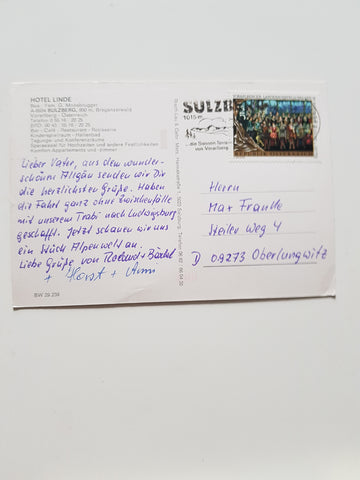 HOTEL LINDE
Bes.: Fam. G. Moosbrugger
A-6934 SULZBERG, 850 m, Bregenzerwald
Vorarlberg - Österreich
Bar - Café - Restaurant - Rotisserie
Kinderspielraum - Hallenbad
Tagungs- und Konferenzräume
Speisesaal für Hochzeiten und andere Festlichkeiten
Komfort-Appartements und -zimmer
Lieber Vater, aus dem wunder-
schönen Allgäu senden wir Dir
die herzlichsten Grüße. Haben
die Fahrt ganz ohne Zwischenfälle
mit unserem Trabi nach Ludwigsburg
geschafft. Jetzt schauen wir uns
ein Stück Alpenwelt an.
Liebe Grüße von Roland + Bärbel
+ Horst + Anni
BW 29 239
SULZBERG
1015 m
die Sonnen Terrasse
von Vorarlberg
REPUBLIK ÖSTERREICH
Herrn
Max Franke
Steiler Weg 4
D 09273 Oberlungwitz